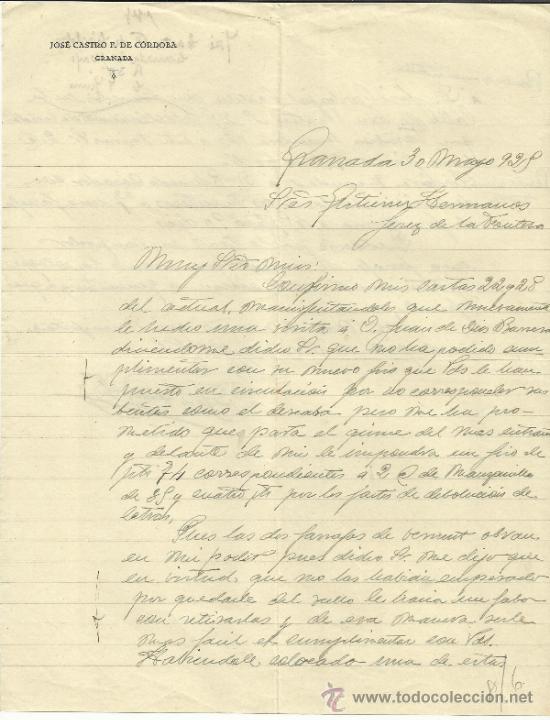 JOSÉ CASTRO F. DE CÓRDOBA
GRANADA
Granada 30 Mayo 928
Sres Gutierrez Hermanos
Jerez de la Frontera
Muy Sres mios:
Confirmo mis cartas 22 y 28
del actual, manifestandoles que nuevamente
he hecho una visita a D. Juan de Dios
diciendome dicho Sr. que no ha podido cum-
plimentar con su nuevo giro que Vds le han
puesto en circulación por no corresponder sus
como el deseaba pero me ha pro-
metido que para el del mes entrante
y delante de mi le impondra un giro de
pts 74 correspondientes a 2 de Manzanilla
de 35 y cuatro pts por los gastos de devolución de
letras.
Pues las dos garrafas de vermut obran
en mi poder pues dicho Sr. me dijo que
en virtud que no las habia empezado
por quedarle del suyo le hacia un fabor
con retirarlas y de esa manera serle
mas facil el cumplimentar con Vds.
Habiendole colocado una de estas
6
www.todocoleccion.net